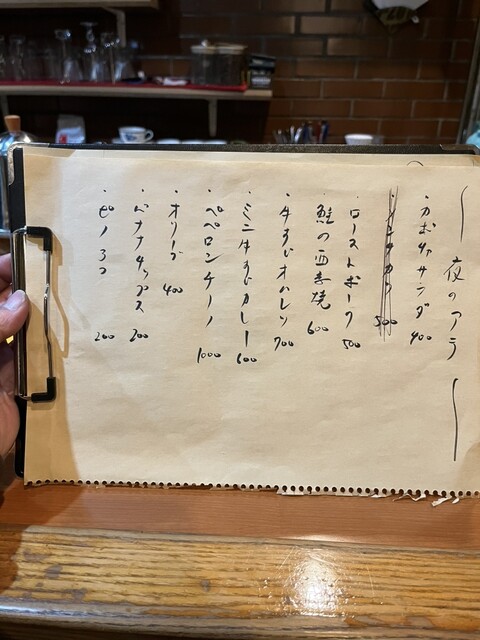 夜のアラ
・カボチャサラダ 400
500
・ローストポーク 500
・鮭の西京焼 600
・牛すじオムレツ 700
・ミニ牛すじカレー 600
・ペペロンチーノ 1000
・オリーブ 400
・バナナチップス 200
・ピノ3コ 200